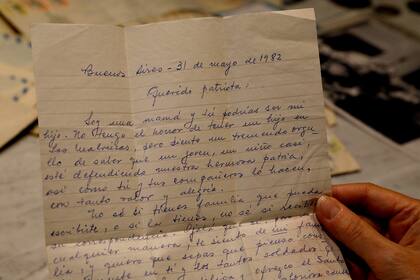 Buenos Aires - 31 de mayo de 1982
Querido patriota:
Soy una mamá y tú podrías ser mi
hijo. No tengo el honor de tener un hijo en
las Malvinas, pero siento un tremendo orgu
llo de saber que un joven, un niño casi,
está defendiendo nuestra hermosa patria,
así como tú y tus compañeros lo hacen,
con tanto valor y alegría.
No sé si tienes familia, que pueda
escribirte, o si la tienes, no se si recibes
su correspondencia
cualquier manera, te siento de mi fami
lia, y quiero que sepas que pienso
en ti y los tantos soldados
ofrezco el Santo